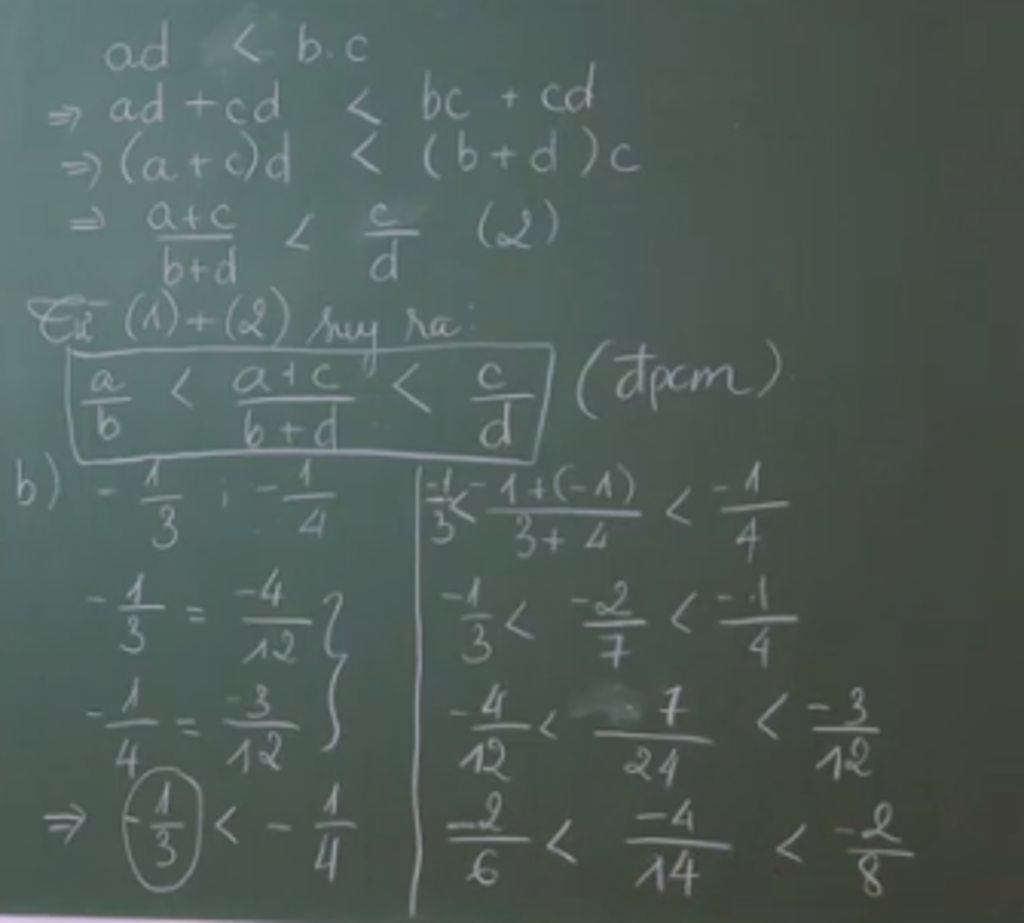 ad < b.c
⇒ ad + cd < bc + cd
⇒ (a + c)d < (b + d)c
⇒ \frac{a+c}{b+d} < \frac{c}{d} (2)
Từ (1) + (2) suy ra:
\frac{a}{b} < \frac{a+c}{b+d} < \frac{c}{d} (đpcm)
b) -\frac{1}{3} ; -\frac{1}{4}
-\frac{1}{3} = \frac{-4}{12}
-\frac{1}{4} = \frac{-3}{12}
⇒ -\frac{1}{3} < -\frac{1}{4}
\frac{-1}{3} < \frac{-1+(-1)}{3+4} < \frac{-1}{4}
\frac{-1}{3} < \frac{-2}{7} < \frac{-1}{4}
\frac{-4}{12} < \frac{-7}{24} < \frac{-3}{12}
\frac{-2}{6} < \frac{-4}{14} < \frac{-2}{8}